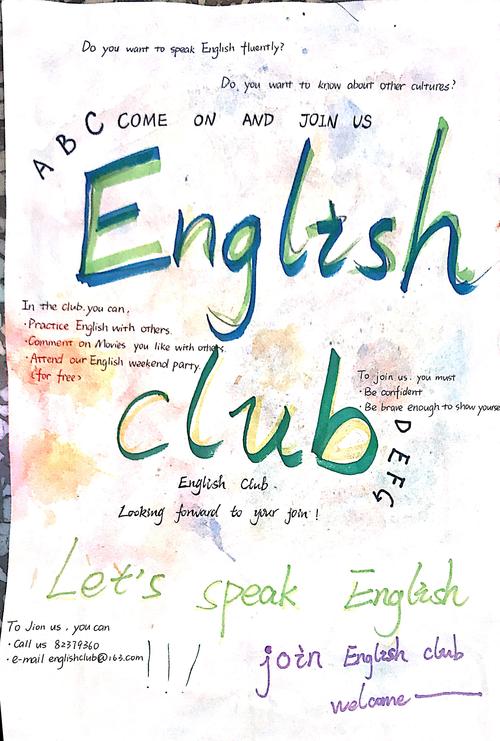 Do you want to speak English fluently?
Do you want to know about other cultures?
A B C COME ON AND JOIN US
English
In the club, you can,
·Practice English with others.
·Comment on Movies you like with others.
·Attend our English weekend party.
(for free)
club
To join us, you must
·Be confident
·Be brave enough to show yourse
D E F G
English Club.
Looking forward to your join !
Let's speak English
To Jion us, you can
·Call us 82379360
·e-mail englishclub@163.com
!!!
join English club
welcome